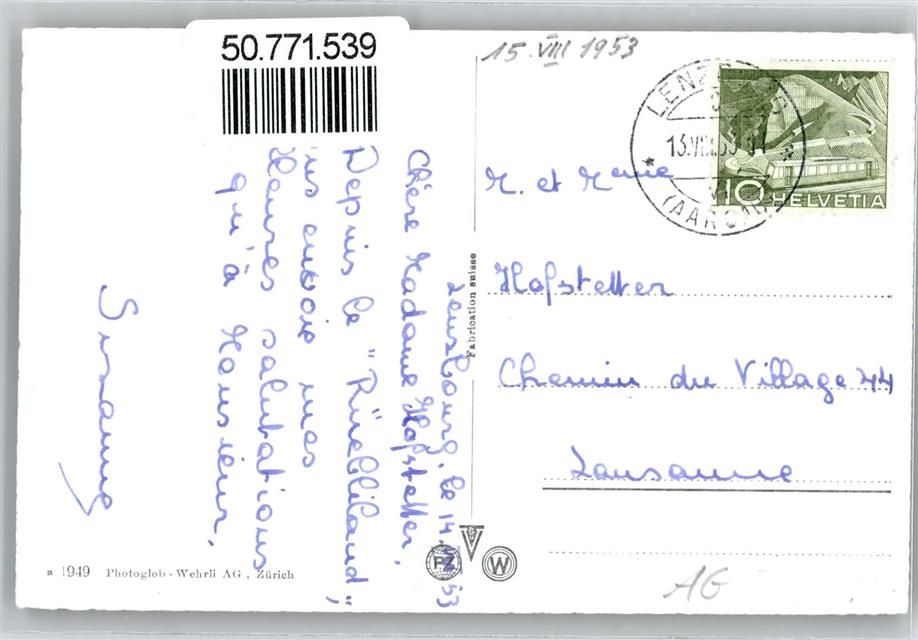 50.771.539
15.VIII 1953
LENZBURG
13.VIII.53
(AARGAU)
10 HELVETIA
Lenzbourg, le 14.
53
Chère Madame Hofstetter,
Depuis le "Rüebliland",
vous envoie mes
salutations
qu'à Monsieur,
Susanne
Fabrication suisse
M. et Mme
Hofstetter
Chemin du Village 44
Lausanne
PZ
W
a 1949 Photoglob-Wehrli AG, Zürich
AG